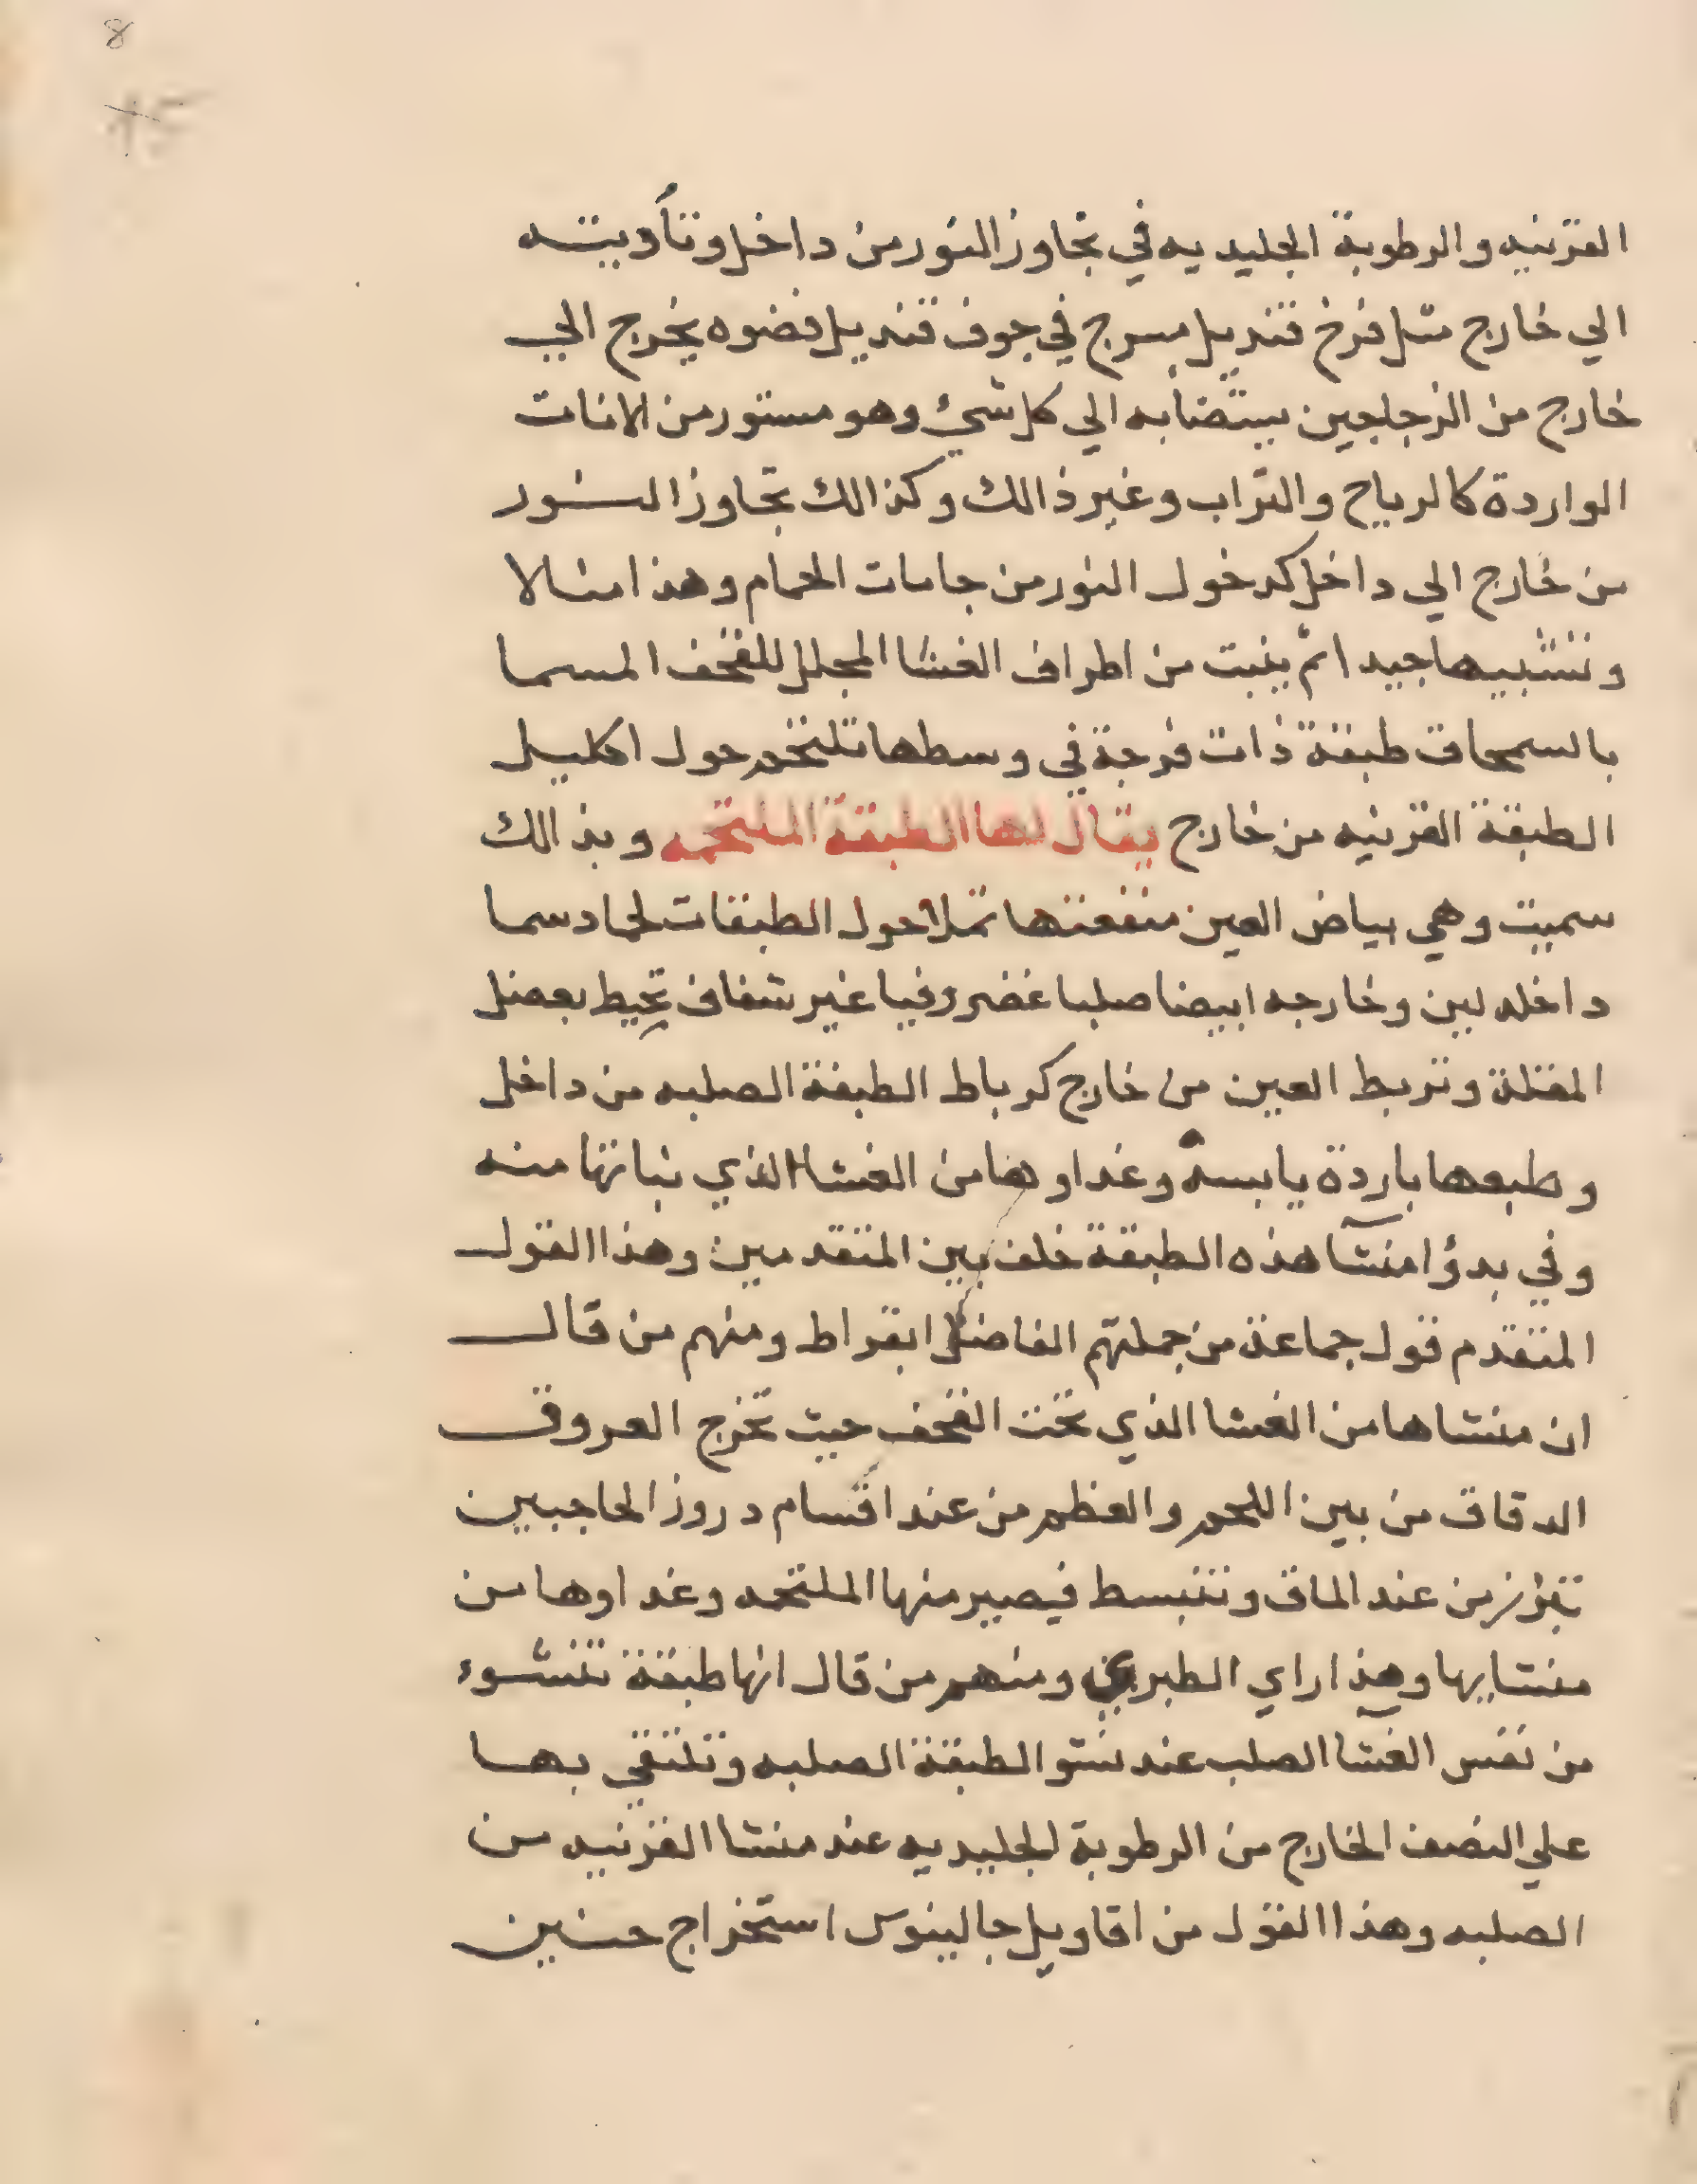 8
القرنيه والرطوبة الجليديه في تجاوز النور من داخل وتأديته
الي خارج مثل فرخ قنديل مسرج في جوف قنديل فضوه يخرج الي
خارج من الزجاجين يستضأ به الي كل شيئ وهو مستور من الافات
الواردة كالرياح والتراب وغير ذالك وكذالك تجاوز النور
من خارج الي داخل كدخول النور من جامات الحمام وهذا مثالا
وتشبيها جيد اثم ينبت من اطراف الغشا المجلل للقحف المسما
بالسمحاق طبقة ذات فرجة في وسطها تلتحم حول اكليل
الطبقة القرنيه من خارج يقال لها الطبقة الملتحمه وبذالك
سميت وهي بياض العين منفعتها تملا حول الطبقات لحما دسما
داخله لين وخارجه ابيضا صلبا غضروفيا غير شفاف تحيط بعضل
المقلة وتربط العين من خارج كرباط الطبقة الصلبه من داخل
وطبعها باردة يابسة وغداوها من الغشا الذي نباتها منه
وفي بدؤ منشا هذه الطبقة خلف بين المتقدمين وهذا القول
المتقدم قول جماعة من جملتهم الفاضل ابقراط ومنهم من قال
ان منشاها من الغشا الذي تحت القحف حيث تخرج العروق
الدقاق من بين اللحم والعظم من عند اقسام دروز الحاجبين
تبرز من عند الماق وتنبسط فيصير منها الملتحمه وغداوها من
منشايها وهذا راي الطبري ومنهم من قال انها طبقة تنشوء
من نفس الغشا الصلب عند نشو الطبقة الصلبه وتلتقي بها
علي النصف الخارج من الرطوبة الجليديه عند منشا القرنيه من
الصلبه وهذا القول من اقاويل جالينوس استخراج حنين